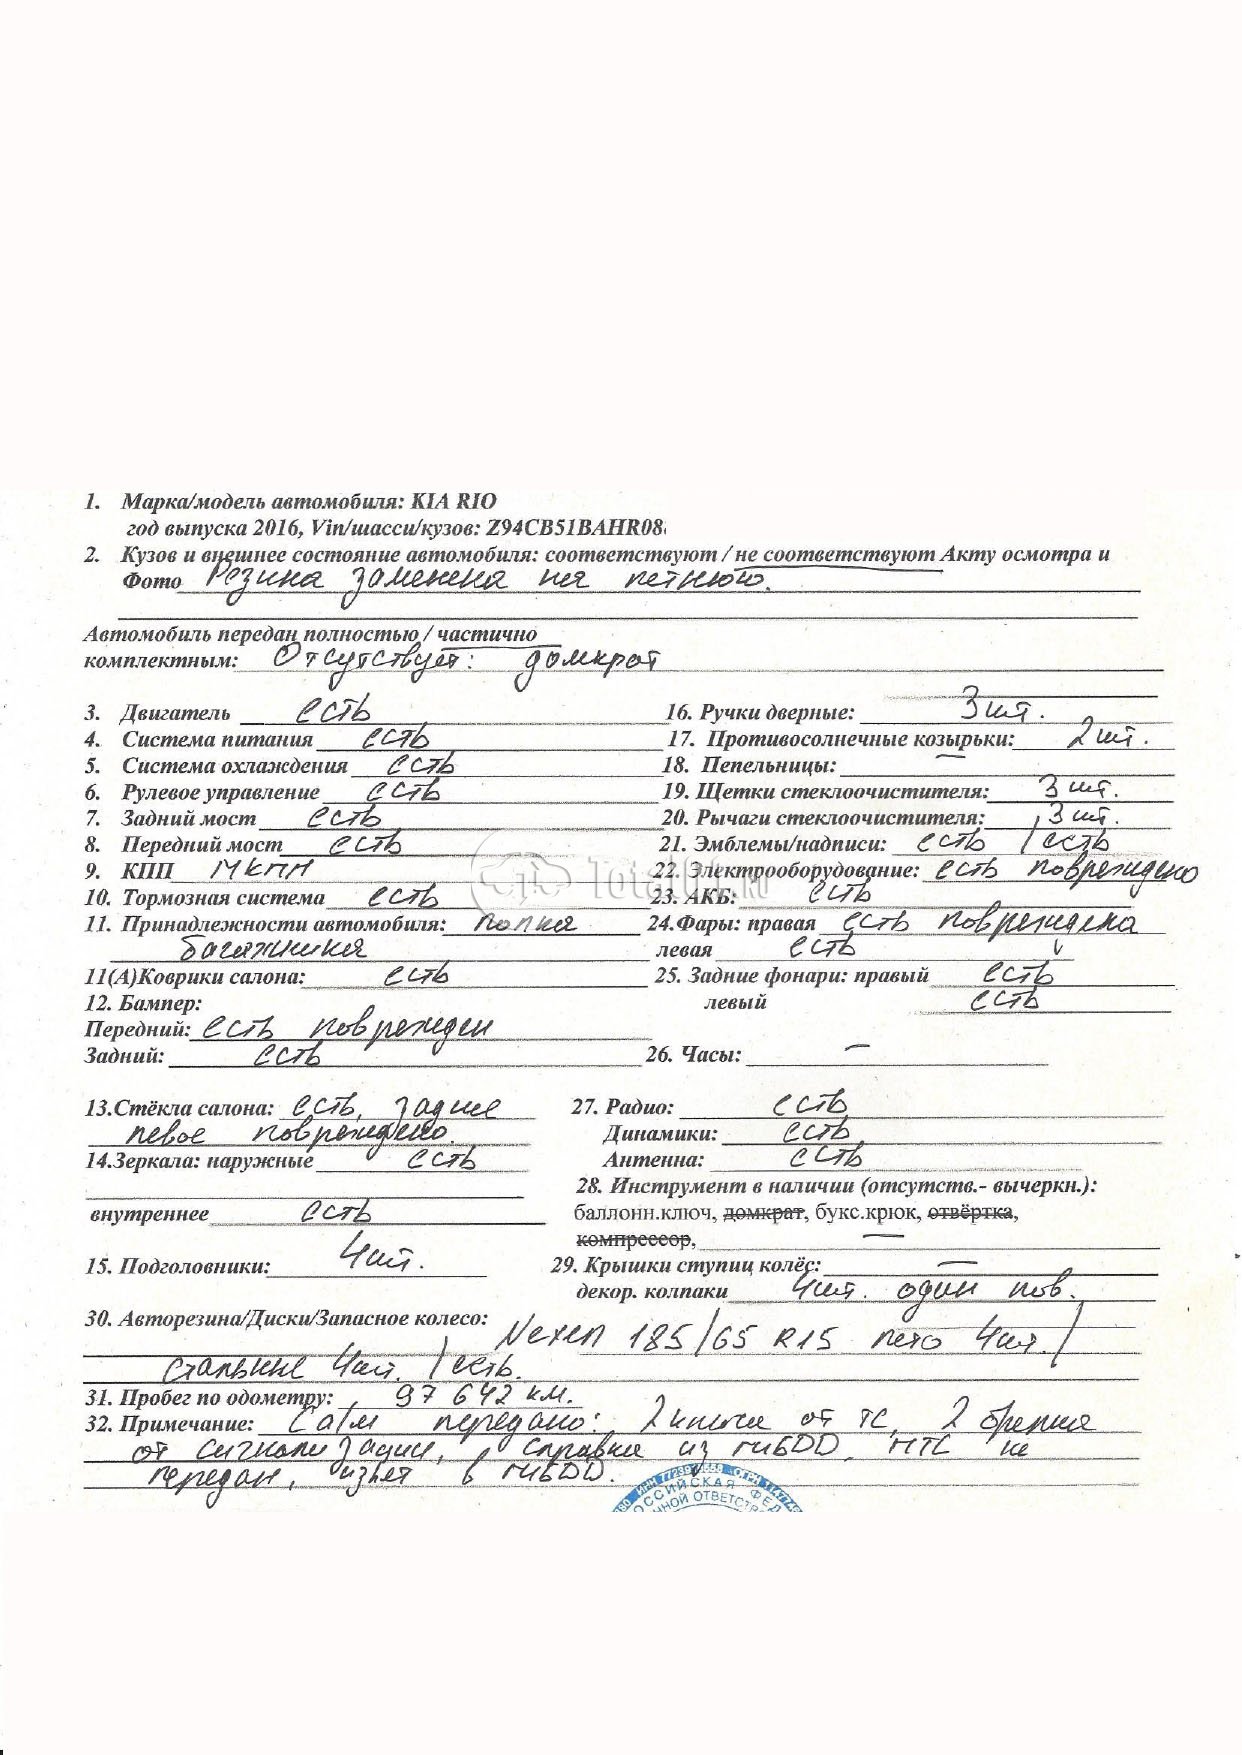 1. Марка/модель автомобиля: KIA RIO
год выпуска 2016, Vin/шасси/кузов: Z94CB51BAHR08
2. Кузов и внешнее состояние автомобиля: соответствуют / не соответствуют Акту осмотра и
Фото Резина заменена на летнюю.
Автомобиль передан полностью / частично
комплектным: Отсутствует: домкрат
3. Двигатель есть 16. Ручки дверные: 3 шт.
4. Система питания есть 17. Противосолнечные козырьки: 2 шт.
5. Система охлаждения есть 18. Пепельницы: —
6. Рулевое управление есть 19. Щетки стеклоочистителя: 3 шт.
7. Задний мост есть 20. Рычаги стеклоочистителя: 3 шт.
8. Передний мост есть 21. Эмблемы/надписи: есть / есть
9. КПП МКПП 22. Электрооборудование: есть повреждено
10. Тормозная система есть 23. АКБ: есть
11. Принадлежности автомобиля: полка 24.Фары: правая есть повреждена
багажника левая есть
11(А)Коврики салона: есть 25. Задние фонари: правый есть
12. Бампер: левый есть
Передний: есть поврежден
Задний: есть 26. Часы: —
13.Стёкла салона: есть, заднее 27. Радио: есть
левое повреждено. Динамики: есть
14.Зеркала: наружные есть Антенна: есть
28. Инструмент в наличии (отсутств.- вычеркн.):
внутреннее есть баллонн.ключ, домкрат, букс.крюк, отвёртка,
компрессор, —
15. Подголовники: 4 шт. 29. Крышки ступиц колёс: —
декор. колпаки 4 шт. один пов.
30. Авторезина/Диски/Запасное колесо: Nexen 185/65 R15 лето 4 шт. /
Стальные 4 шт. / есть.
31. Пробег по одометру: 97 642 км.
32. Примечание: С а/м передано: 2 ключа от ТС, 2 брелка
от сигнализации, справка из ГИБДД, ПТС не
передан, изъят в ГИБДД.
TotalCar.RU
ИНН ОГРН
РОССИЙСКАЯ ФЕД
ННОЙ ОТВЕТСТ